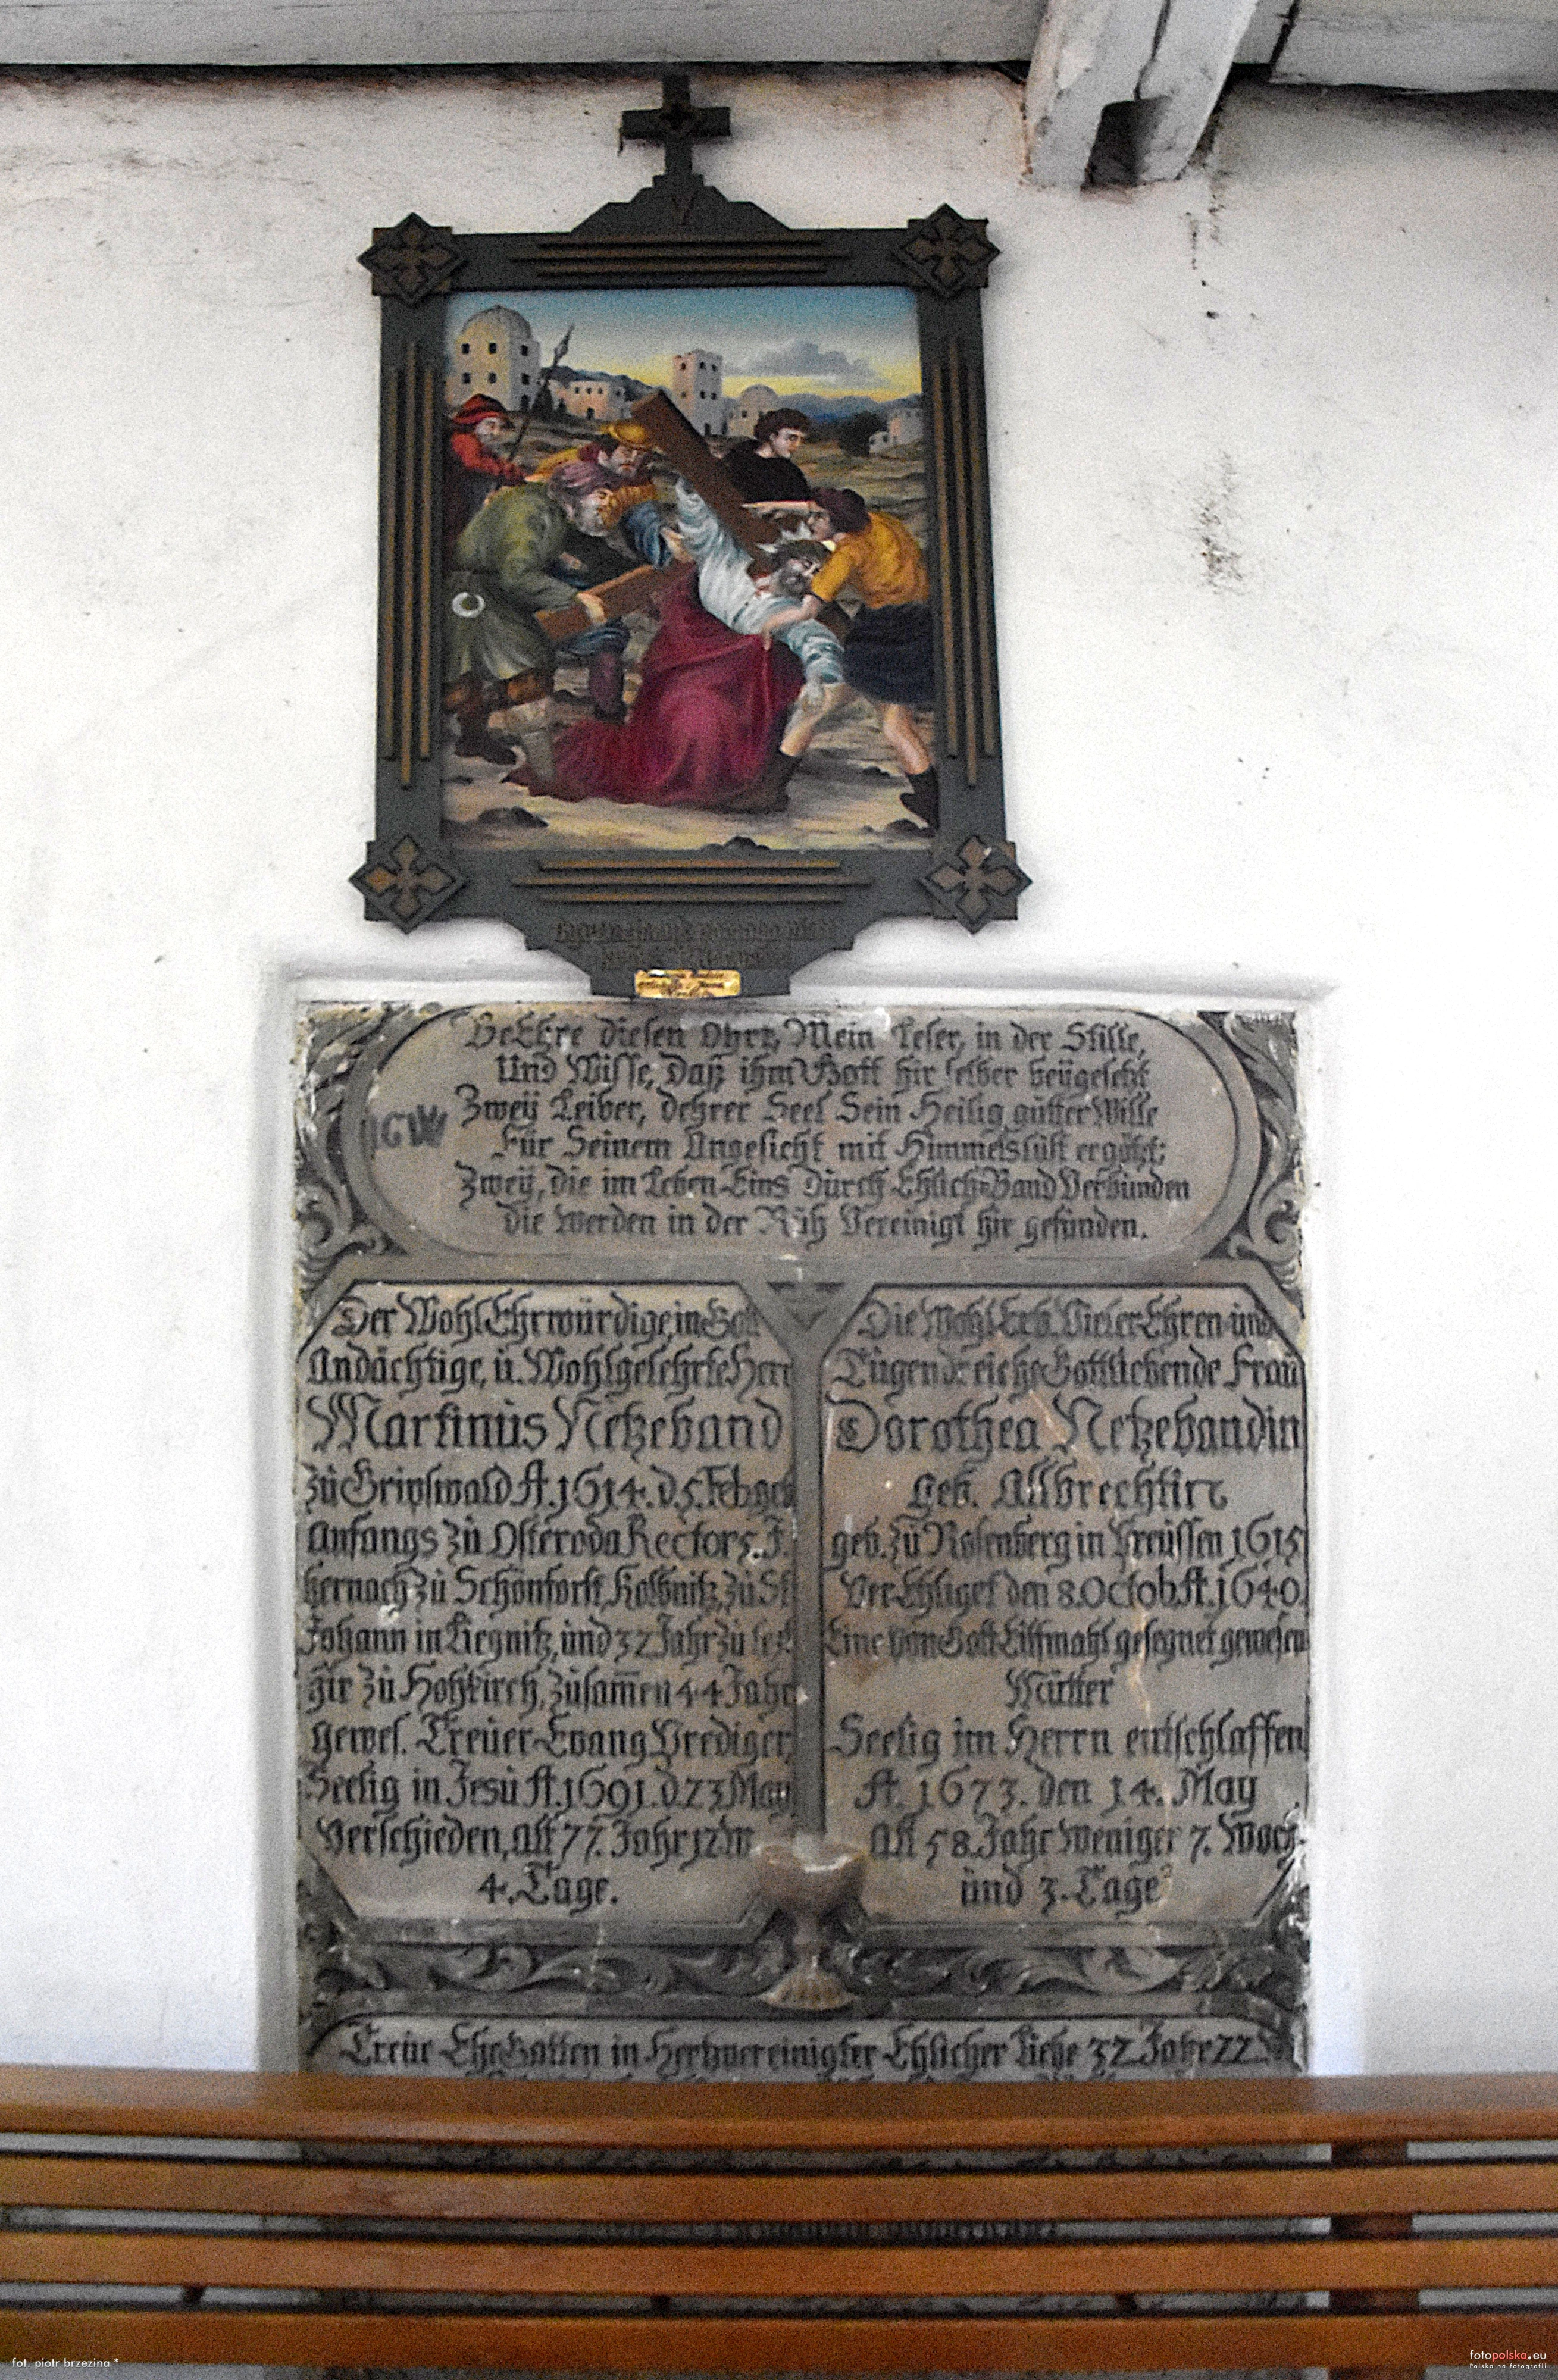 BeEhre diesen Ohrt, Mein Leser, in der Stille,
Und Wisse, Daß ihm Gott hir selber beÿgesetzt
Zweÿ Leiber, dehrer Seel Sein Heilig gutter Wille
Für Seinem Angesicht mit Himmelslust ergötzt;
IGW
Zweÿ, die im Leben Eins Durch Ehlich Band Verbunden
die werden in der Ruh Vereinigt hir gefunden.
Der WohlEhrwürdige, in Gott
Andächtige, u. Wohlgelehrte Herr
Martinus Netzeband
zu Gripswald A. 1614. d. 5. Feb. geb
Anfangs zu Osteroda Rector 5. J.
hernach zu Schönforst, Kolbnitz, zu St
Johann in Liegnitz, und 32 Jahr zu letzt
hir zu Hohkirch, zusam̅en 44 Jahr
gewes. Treuer Evang Prediger,
Seelig in Jesu A. 1691. d. 23 May
Verschieden, Alt 77. Jahr 12 W
4. Tage.
Die Wohl Erb. Vieler Ehren und
Tugendreiche Gottliebende Frau
Dorothea Netzebandin
Geb. Allbrechtin
geb. zu Rosenberg in Preussen 1615
VerEhliget den 8. Octob. A. 1640.
Eine von Gott Eilfmahl gesegnet gewesene
Mutter
Seelig im Herrn entschlaffen
A. 1673. den 14. May
Alt 58. Jahr Weniger 7. Woch.
und 3. Tage
Treue EheGatten in Hertzvereinigter Ehlicher Liebe 32 Jahr 22
fot. piotr brzezina *
fotopolska.eu
Polska na fotografii